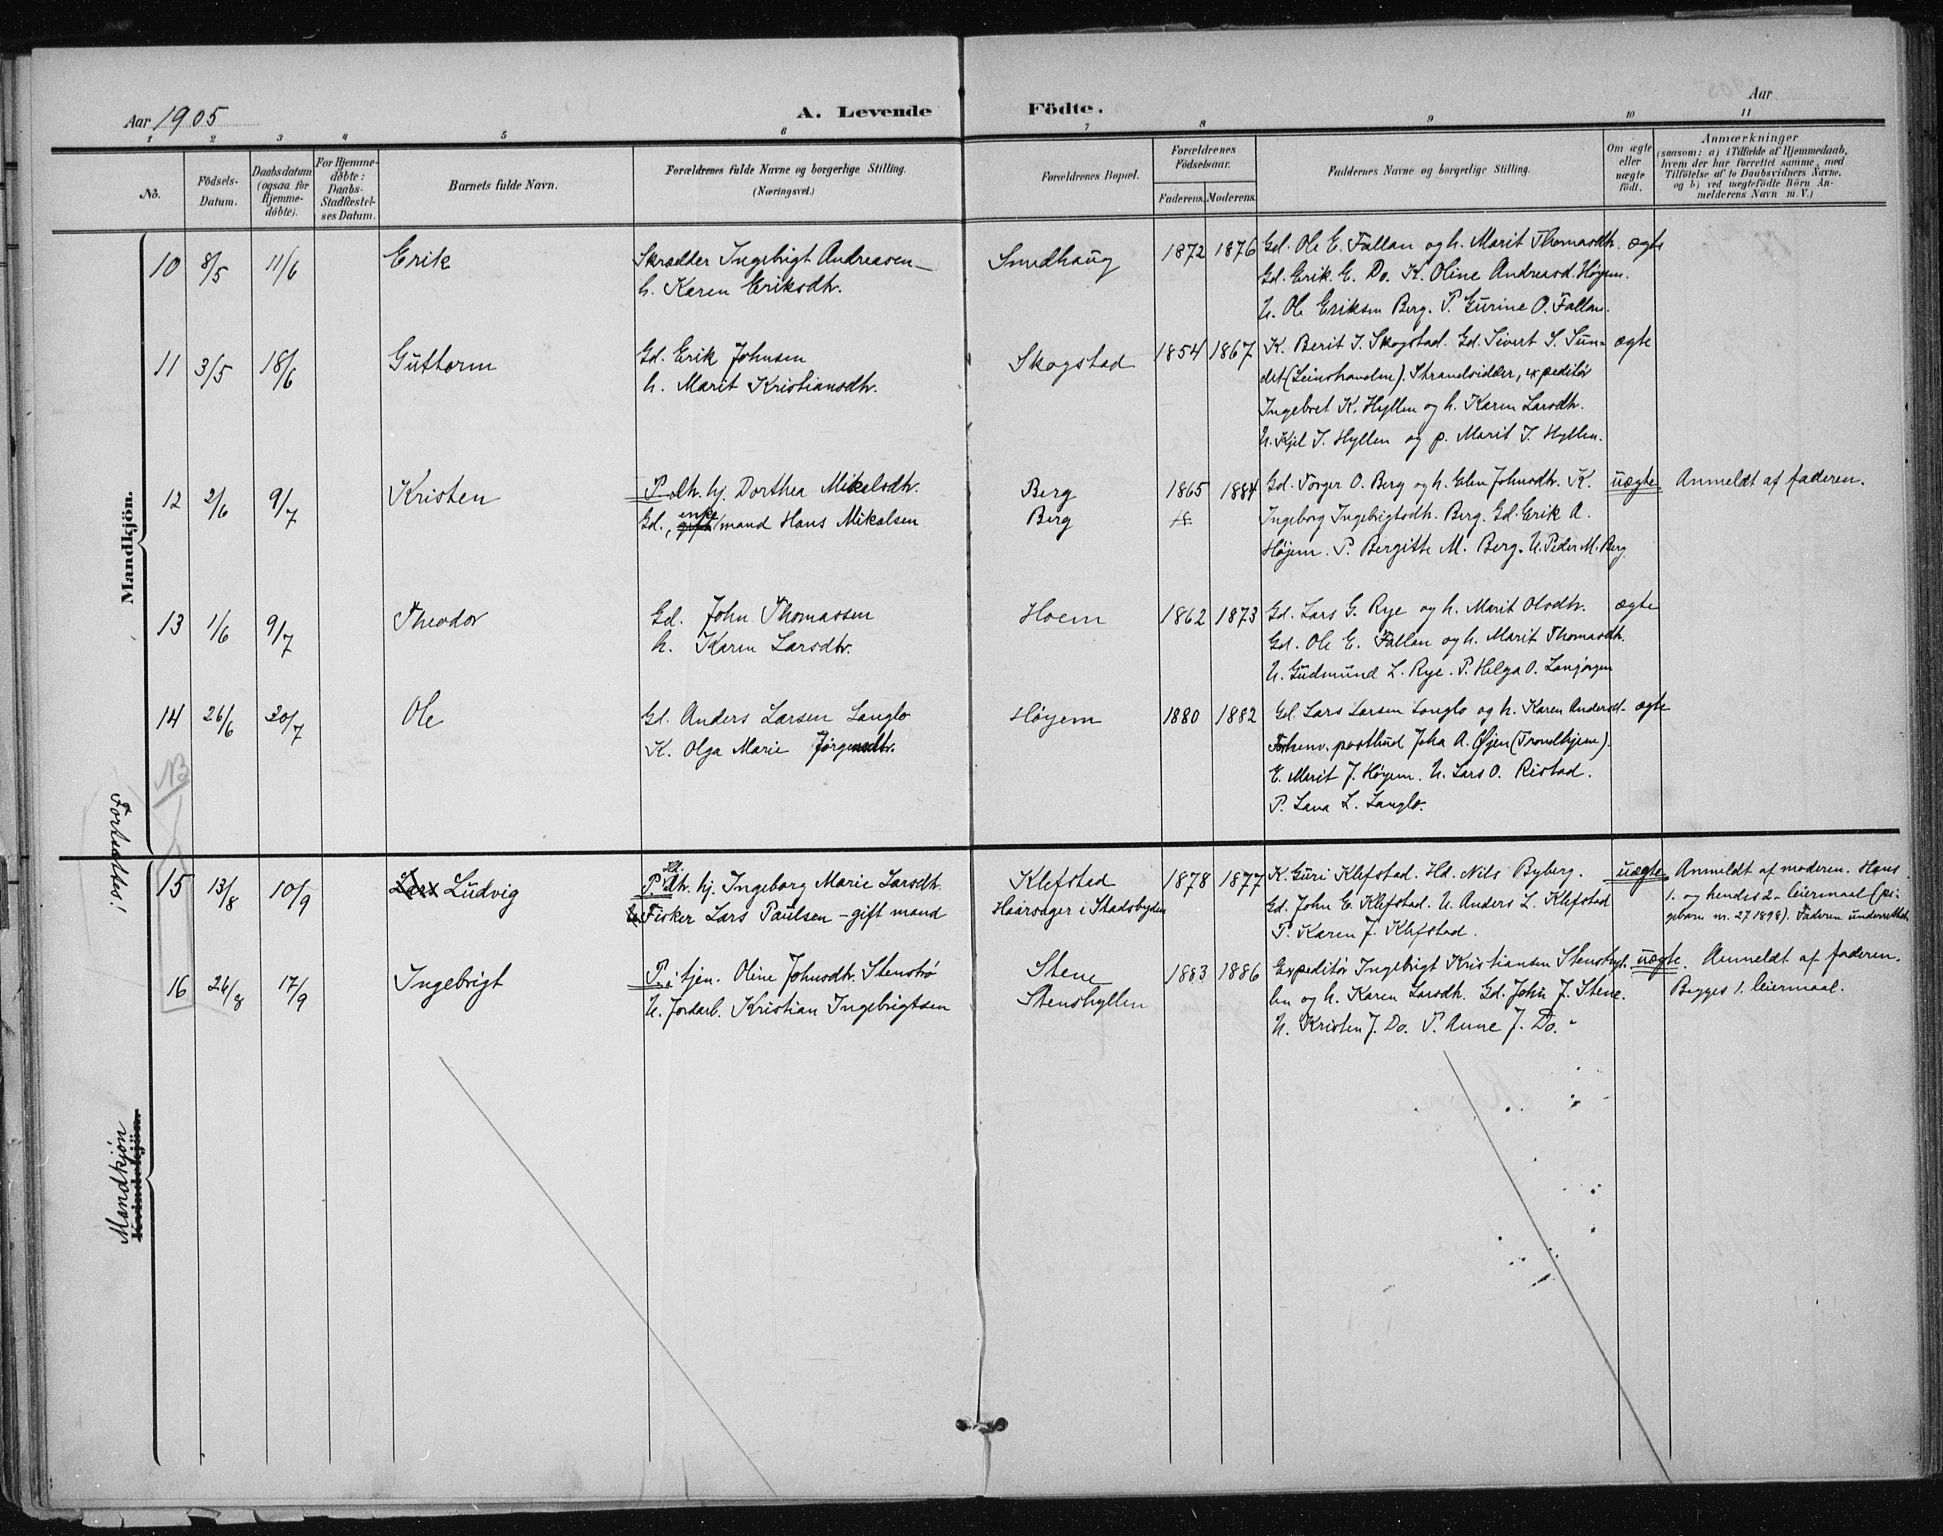 Aar 1905
A. Levende Födte.
Aar
1 2 3 4 5 6 7 8 9 10 11
No.
Födsels-Datum.
Daabsdatum (ogsaa for Hjemme-döbte).
For Hjemme-döbte: Daabs-Stadfæstel-ses Datum.
Barnets fulde Navn.
Forældrenes fulde Navne og borgerlige Stilling. (Næringsvei.)
Forældrenes Bopæl.
Forældrenes Födselsaar.
Faderens. Moderens.
Faddernes Navne og borgerlige Stilling.
Om ægte eller uægte födt.
Anmærkninger
(saasom: a) i Tilfælde af Hjemmedaab,
hvem der har forrettet samme, med
Tilföielse af to Daabsvidners Navne,
og b) ved uægtefödte Börn An-
melderens Navn m. V.)
Mandkjön.
10 8/5 11/6 Erik Skrædder Ingebrigt Andreasen Smedhaug 1872 1876 Gd. Ole E. Fallan og h. Marit Thomasdtr. ægte
h. Karen Eriksdtr. Gd. Erik E. Do. K. Oline Andreasd. Høyem.
U. Ole Eriksen Berg. P. Gurine O. Fallan.
11 3/5 18/6 Guttorm Gd. Erik Johnsen Skogstad 1854 1867 K. Berit I. Skogstad. Gd. Sivert S. Sun- ægte
h. Marit Kristiansdtr. det (Leinstranden). Strandsidder, expeditör
Ingebret K. Hyllen og h. Karen Larsdtr.
U. Kjel I. Hyllen og p. Marit I. Hyllen.
12 2/6 9/7 Kristen P. dtr. hj. Dorthea Mikalsdtr. Berg 1865 1884 Gd. Torger O. Berg og h. Elen Johnsdtr. K. uægte Anmeldt af faderen.
Gd., gift enke/mand Hans Mikalsen Berg Ingeborg Ingebrigtsdtr. Berg. Gd. Erik A.
Høyem. P. Bergitte M. Berg. U. Peder M. Berg
13 1/6 9/7 Theodor Gd. John Thomassen Hoem 1862 1873 Gd. Lars G. Rye og h. Marit Olsdtr. ægte
h. Karen Larsdtr. Gd. Ole E. Fallan og h. Marit Thomasdtr.
U. Gudmund L. Rye. P. Helga O. Langørgen
14 26/6 30/7 Ole Gd. Anders Larsen Langlo Høyem 1880 1882 Gd. Lars Larsen Langlo og h. Karen Andersd. ægte
K. Olga Marie Jørgensdtr. Forhenv. postbud Joha A. Øjen (Trondhjem).
E. Marit J. Høyem. U. Lars O. Ristad.
P. Lava L. Langlo.
NB
Fortsættes!
15 13/8 10/9 Lars Ludvig P. dtr. hj. Ingeborg Marie Larsdtr. Klefstad 1878 1877 K. Guri Klefstad. Hd. Nils Byberg. uægte Anmeldt af moderen. Hans
Fisker Lars Paulsen - gift mand Haarsager i Stadsbygden Gd. John E. Klefstad. U. Anders L. Klefstad 1. og hendes 2. leiermaal (pi-
P. Karen J. Klefstad. gebarn nr. 27 1898). Faderen underrettet.
16 26/8 17/9 Ingebrigt P. i tjen. Oline Johnsdtr. Stenstrø Stene 1883 1886 Expeditör Ingebrigt Kristiansen Stenshyl- uægte. Anmeldt af faderen.
U. Jordarb. Kristian Ingebrigtsen Stenshyllen len og h. Karen Larsdtr. Gd. John J. Stene. Begges 1. leiermaal.
U. Kristen J. Do. P. Anne J. Do.
Mandkjön
Kvindekjön.